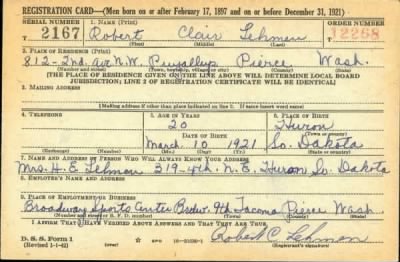 REGISTRATION CARD—(Men born on or after February 17, 1897 and on or before December 31, 1921)
SERIAL NUMBER 1. NAME (Print) ORDER NUMBER
T 2167 Robert Clair Lehman 12268
(First) (Middle) (Last)
2. PLACE OF RESIDENCE (Print)
812-2nd. Av. N.W. Puyallup Pierce Wash.
(Number and street) (Town, township, village, or city) (County) (State)
[THE PLACE OF RESIDENCE GIVEN ON THE LINE ABOVE WILL DETERMINE LOCAL BOARD
JURISDICTION; LINE 2 OF REGISTRATION CERTIFICATE WILL BE IDENTICAL]
3. MAILING ADDRESS
[Mailing address if other than place indicated on line 2. If same insert word same]
4. TELEPHONE 5. AGE IN YEARS 6. PLACE OF BIRTH
20 Huron
DATE OF BIRTH (Town or county)
March 10 1921 So. Dakota
(Exchange) (Number) (Mo.) (Day) (Yr.) (State or country)
7. NAME AND ADDRESS OF PERSON WHO WILL ALWAYS KNOW YOUR ADDRESS
Mrs. H. E. Lehman 219-4th. N.E. Huron So. Dakota
8. EMPLOYER'S NAME AND ADDRESS
9. PLACE OF EMPLOYMENT OR BUSINESS
Broadway Sports Center Brdw. 9th Tacoma Pierce Wash.
(Number and street or R. F. D. number) (Town) (County) (State)
I AFFIRM THAT I HAVE VERIFIED ABOVE ANSWERS AND THAT THEY ARE TRUE.
D. S. S. Form 1
(Revised 1-1-42) GPO Robert C Lehman
(Registrant's signature)